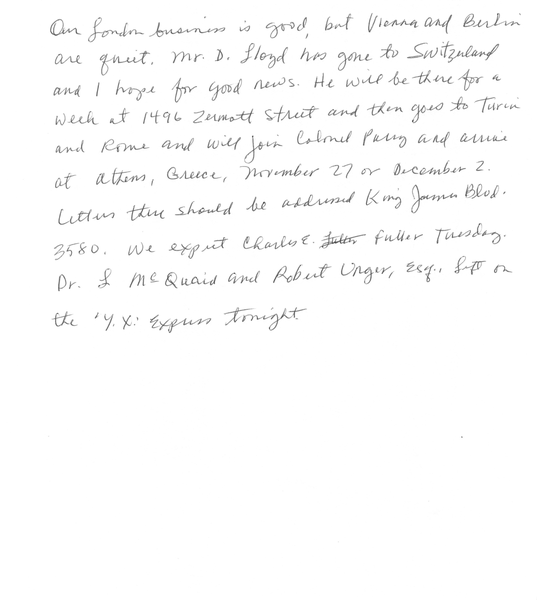 Our London business is good, but Vienna and Berlin
are quiet. Mr. D. Lloyd has gone to Switzerland
and I hope for good news. He will be there for a
week at 1496 Zermott Street and then goes to Turin
and Rome and will join Colonel Parry and arrive
at Athens, Greece, November 27 or December 2.
Letters there should be addressed King James Blvd.
3580. We expect Charles E. Fuller Tuesday.
Dr. L McQuaid and Robert Unger, Esq., left on
the 'Y.X.' Express tonight.